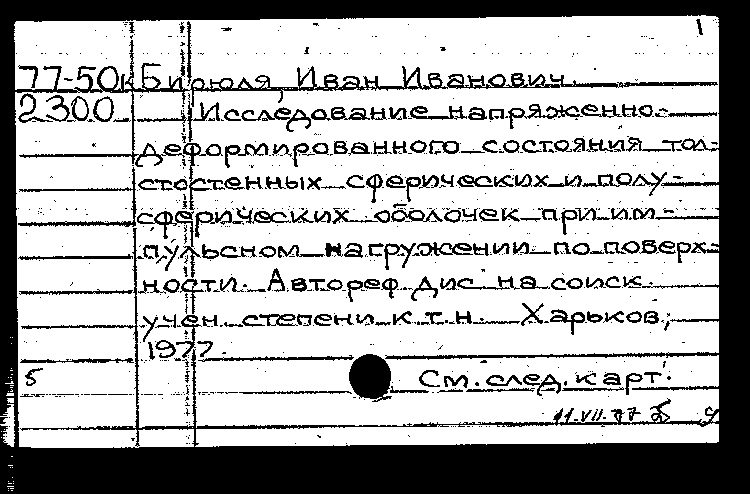 1
77-50к Бирюля, Иван Иванович.
2300 Исследование напряженно-
деформированного состояния тол-
стостенных сферических и полу-
сферических оболочек при им-
пульсном нагружении по поверх-
ности. Автореф дис на соиск.
учен. степени к.т.н. Харьков,
1977.
5 См. след. карт.
11.VII.77